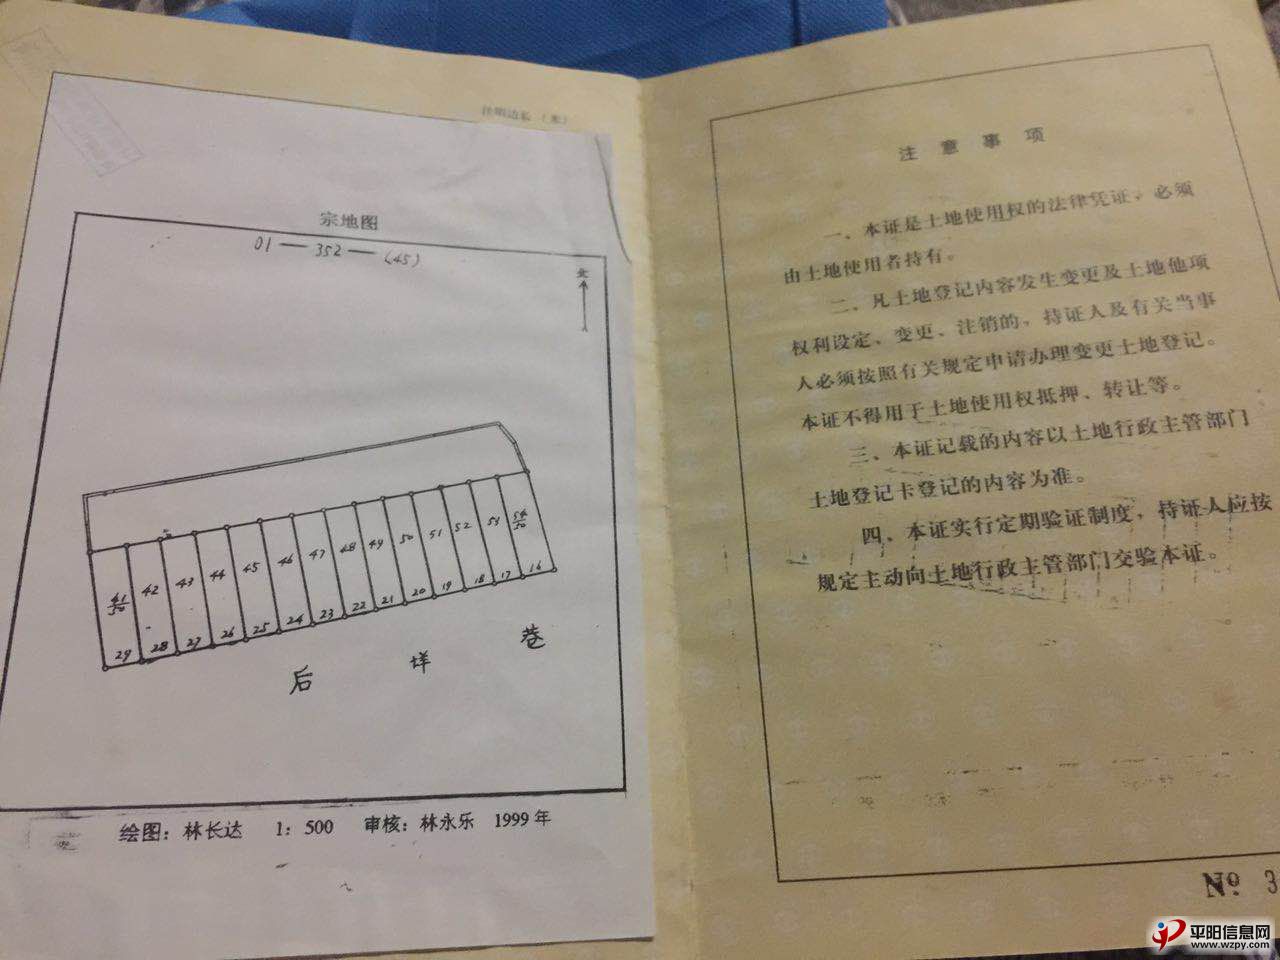 注明边长（米）
宗地图
01—352—(45)
北
41/50 42 43 44 45 46 47 48 49 50 51 52 53 54/50
29 28 27 26 25 24 23 22 21 20 19 18 17 16
后垟巷
绘图：林长达 1：500 审核：林永乐 1999年
注意事项
一、本证是土地使用权的法律凭证，必须
由土地使用者持有。
二、凡土地登记内容发生变更及土地他项
权利设定、变更、注销的，持证人及有关当事
人必须按照有关规定申请办理变更土地登记。
本证不得用于土地使用权抵押、转让等。
三、本证记载的内容以土地行政主管部门
土地登记卡登记的内容为准。
四、本证实行定期验证制度，持证人应按
规定主动向土地行政主管部门交验本证。
№ 3
平阳信息网
www.wzpy.com